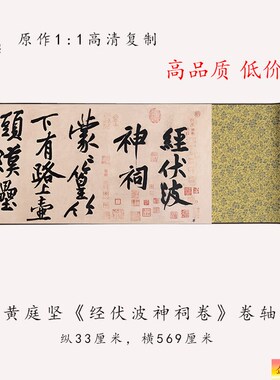 原作1:1高清复制
高品质 低价
經伏波
神祠
蒙〻篁竹
下有路上壺
頭漢壘
黄庭坚《经伏波神祠卷》卷轴
纵33厘米，横569厘米